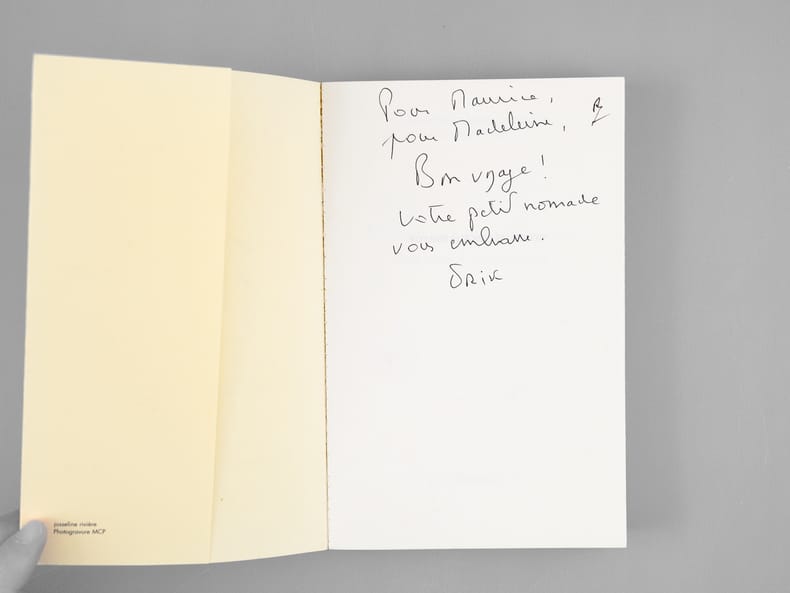 Pour Maurice,
pour Madeleine,
Bon voyage !
votre petit nomade
vous embrasse.
Erik
josseline rivière
Photogravure MCP